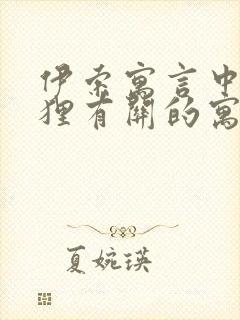 伊索寓言中
狸有關的寓
夏婉瑛